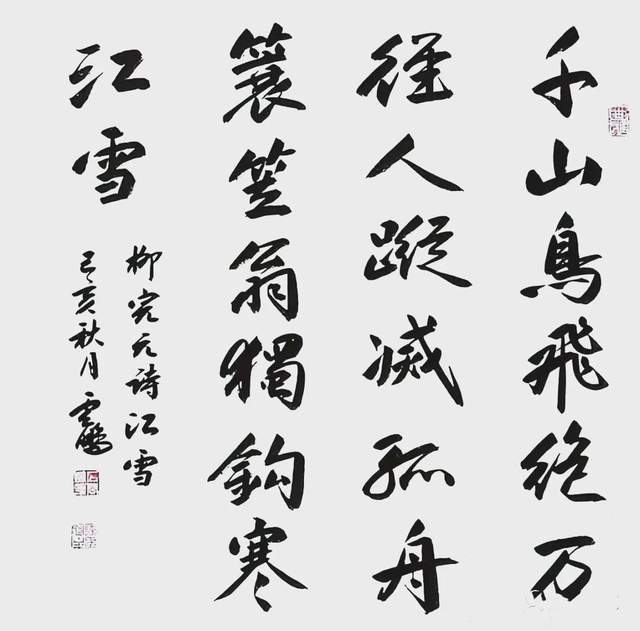 千山鳥飛絶万
徑人蹤滅孤舟
簑笠翁獨釣寒
江雪
柳宗元詩江雪
己亥秋月